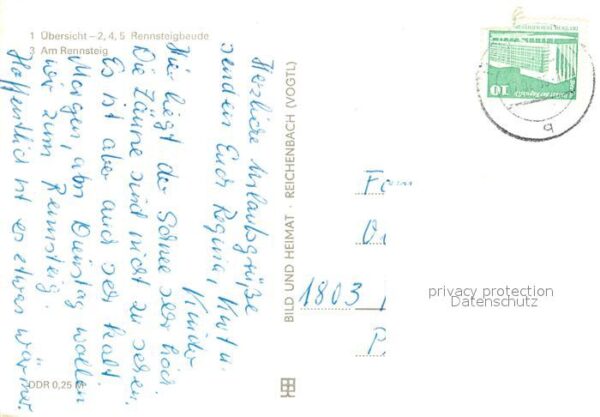 1 Übersicht – 2, 4, 5 Rennsteigbaude
3 Am Rennsteig
Herzliche Urlaubsgrüße
senden Euch Regina, Kurt u.
Kinder
Hier liegt der Schnee sehr hoch.
Die Zäune sind nicht zu sehen.
Es ist aber auch sehr kalt
Morgen, am Dienstag wollen
wir zum Rennsteig.
Hoffentlich ist es etwas wärmer.
DDR 0,25 M
BILD UND HEIMAT · REICHENBACH (VOGTL)
10
1803
privacy protection
Datenschutz